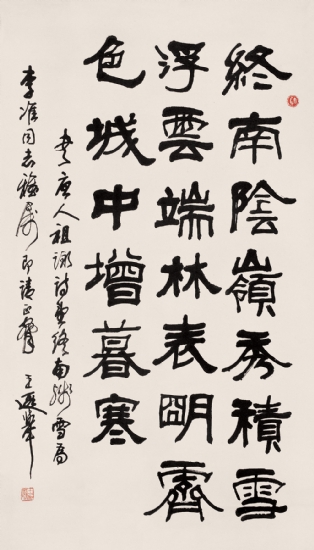 終南陰嶺秀積雪
浮雲端林表朙霽
色城中增暮寒
書唐人祖詠詩望終南殘雪為
李准同志雅屬即請正
王遐舉